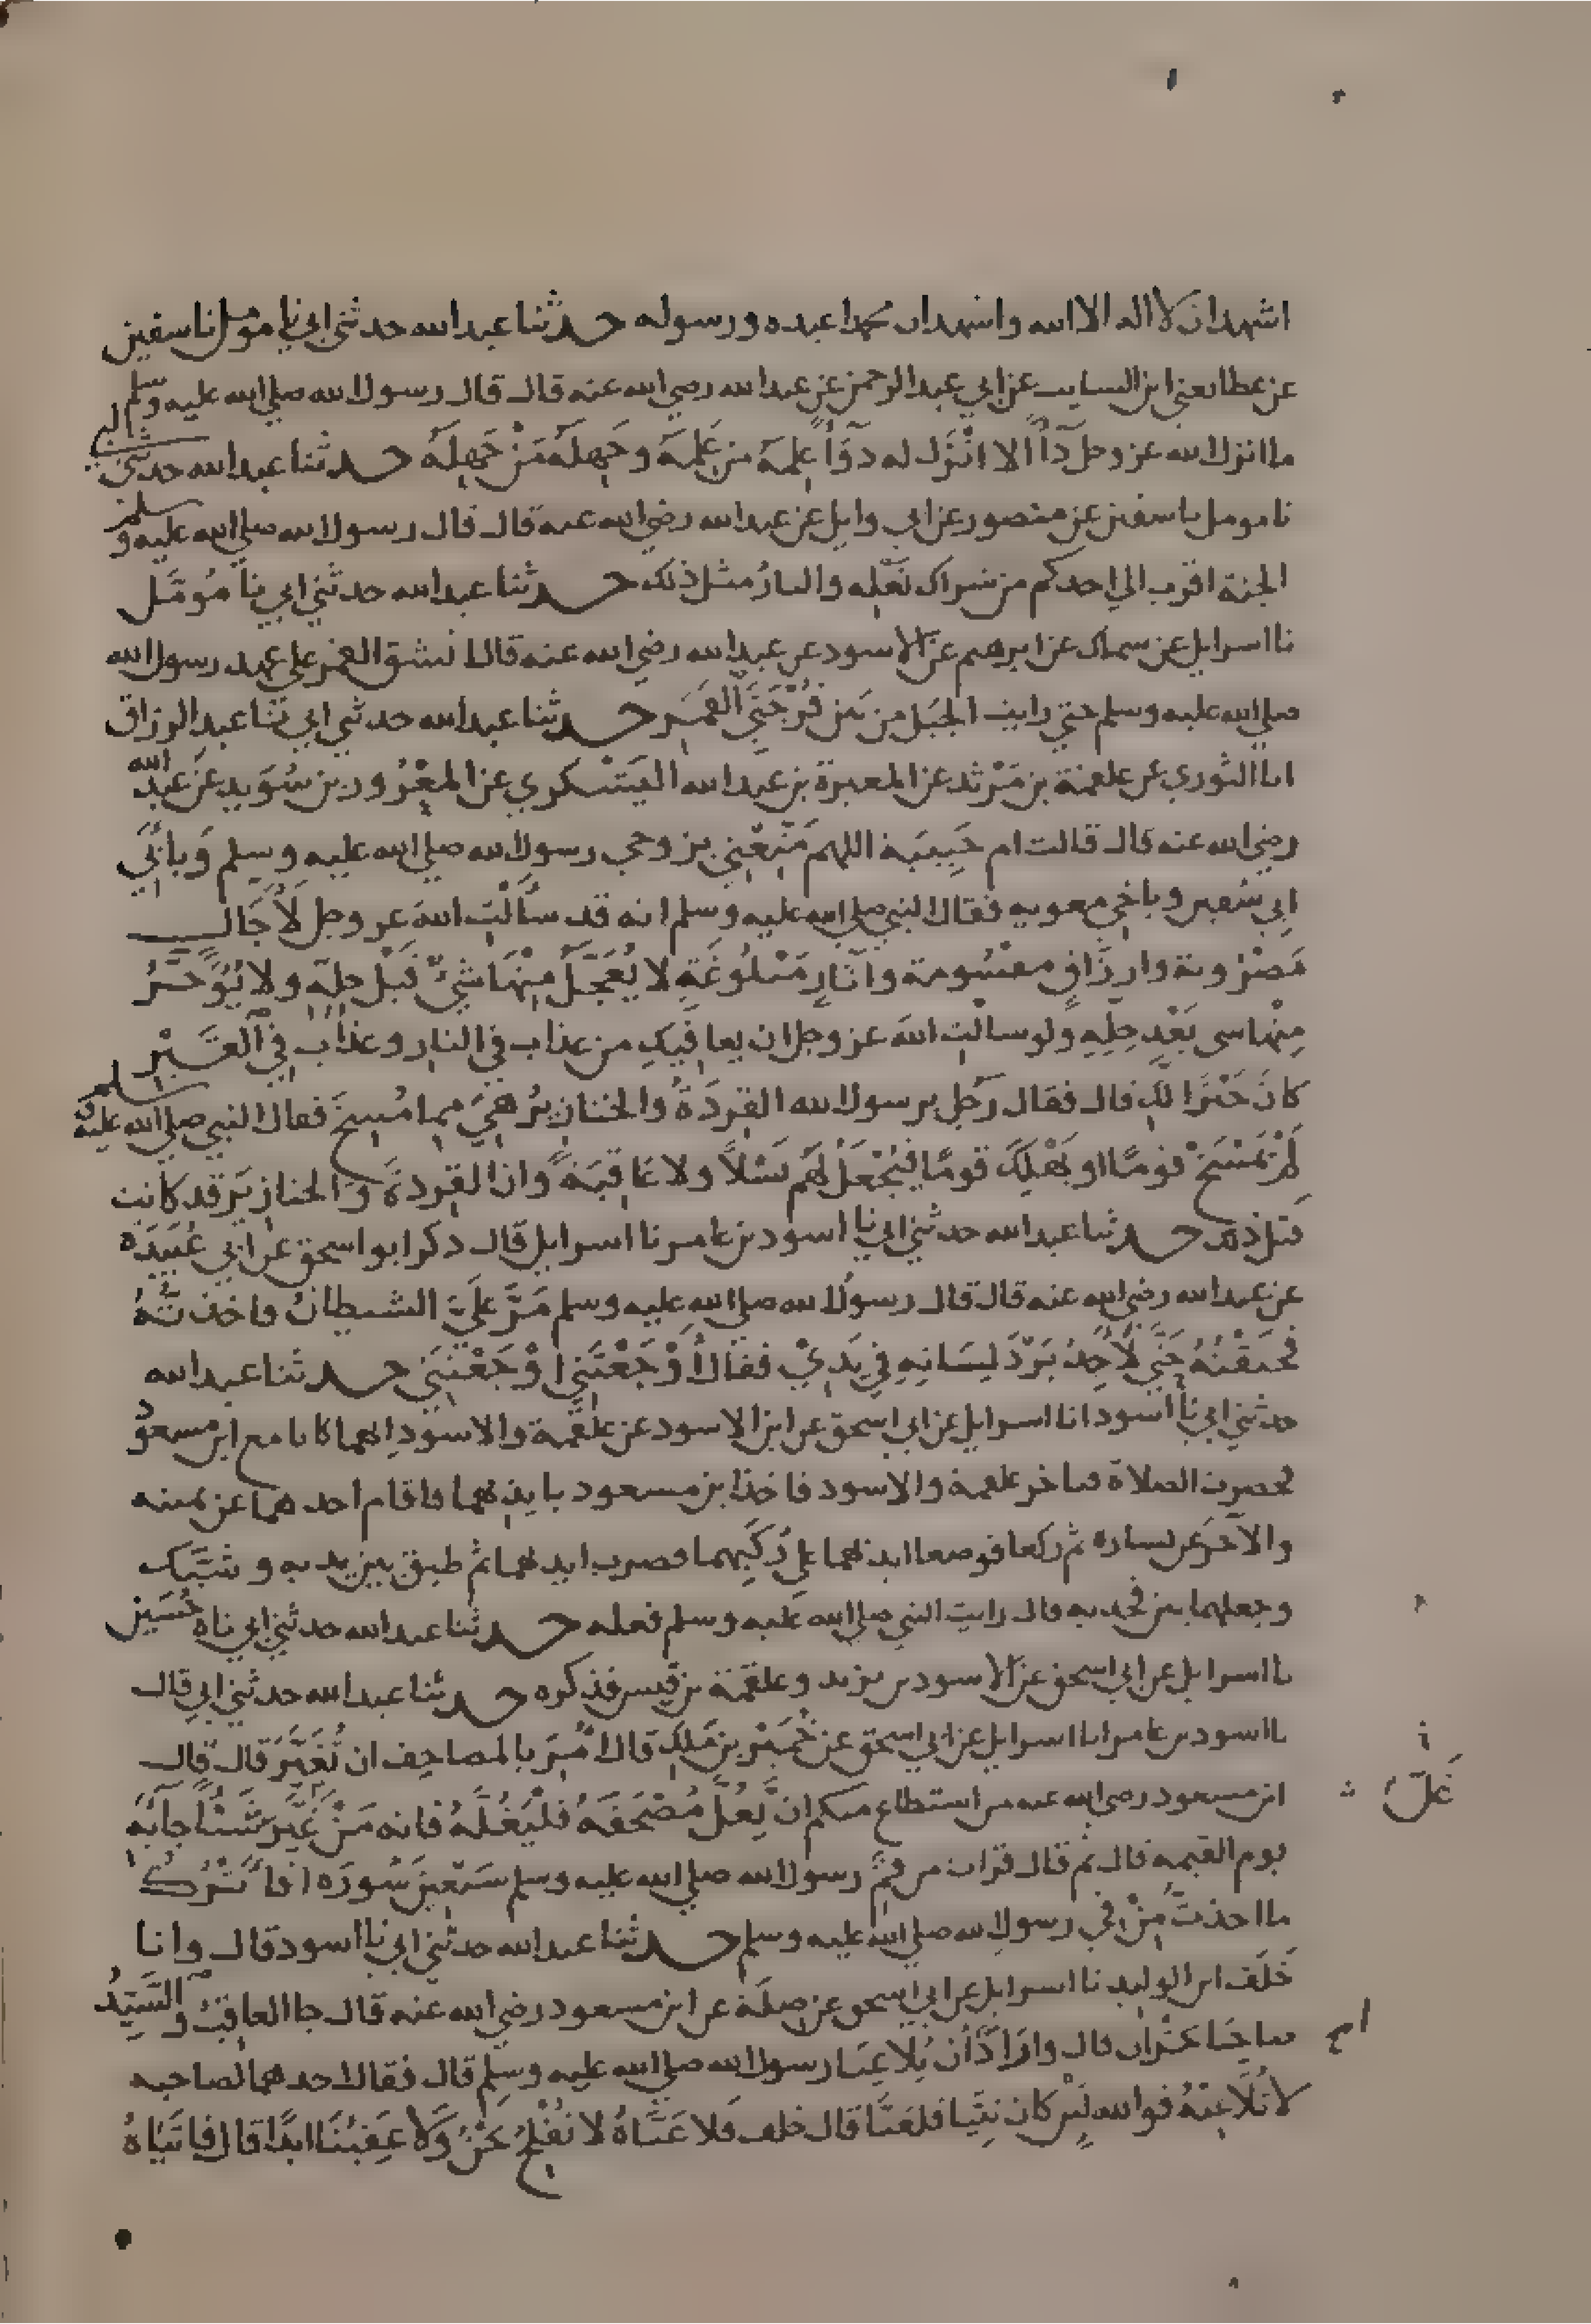 اشهد ان لا اله الا الله واشهد ان محمدا عبده ورسوله حدثنا عبد الله حدثني ابي نا مومل نا سفين
عن عطا يعني ابن السايب عن ابي عبد الرحمن عن عبد الله رضي الله عنه قال قال رسول الله صلي الله عليه وسلم
ما انزل الله عز وجل دآءً الا انْزَل له دوَآءً عَلِمَهُ من عَلِمَهُ وجَهِلَهُ مَنْ جَهِلَهُ حدثنا عبد الله حدثني ابي
نا مومل نا سفين عن منصور عن ابي وايل عن عبد الله رضي الله عنه قال قال رسول الله صلي الله عليه وسلم
الجنة اقرب الي احدكم من شراك نَعْلِه والنارُ مثل ذلك حدثنا عبد الله حدثني ابي نا مُومَّل
نا اسرايل عن سماك عن ابرهيم عن الاسود عن عبد الله رضي الله عنه قال انشق القمر علي عهد رسول الله
صلي الله عليه وسلم حتي رايت الجبَل من بَين فُرْجَتَيِ القمَرِ حدثنا عبد الله حدثني ابي ثنا عبد الرزاق
انا الثوري عن علقمة بن مَرْثد عن المغيرة بن عبد الله اليَشْكري عن المعْرُور بن سُوَيد عن عَبد الله
رضي الله عنه قال قالت ام حَبِيبَة اللهم مَتِّعْنِي بزوجي رسول الله صلي الله عليه وسلم وَبابي
ابي سفين وباخي معويه فقال النبي صلي الله عليه وسلم انه قد سأَلْتِ اللهَ عز وجل لآجَالٍ
مَضْرُوبة وارزَاقٍ مقسُومة وآثارٍ مَبْلُوغَةٍ لا يُعَجَّلُ مِنْهَا شيٌ قَبْل حِلِّه ولا يُوَخَّرُ
مِنْها شي بَعْد حِلِّهِ ولو سالْتِ اللهَ عز وجل ان يعافيَكِ من عذاب في النار وعذاب في القَبْرِ
كانَ خَيْرًا لكِ قال فقال رَجُل يرسول الله القِرَدَةُ والخنازِيرُ هيَ مما مُسِخَ فقال النبي صلي الله عليه وسلم
لمْ يَمْسَخْ قومًا او يَهْلِكْ قومًا فيَجْعَلْ لهُم نَسْلًا ولا عَاقِبَةً وان القِردَةَ وَالخنازيرَ قد كانت
قبل ذلك حدثنا عبد الله حدثني ابي نا اسود بن عامر نا اسرايل قال ذكر ابو اسحق عن ابي عُبَيدَة
عن عبد الله رضي الله عنه قال قال رسول الله صلي الله عليه وسلم مَرَّ عَلَيَّ الشيطانُ فاخذتُهُ
فخنَقْتُهُ حَتَّي لأجِدُ بَرْدَ لِسَانِهِ في يَدِيْ فقال أَوْجَعْتَنِي أوْجَعْتَنِي حدثنا عبد الله
حدثني ابي نا اسود انا اسرايل عن ابي اسحق عن ابن الاسود عن علقمة والاسود انهما كانا مع ابن مسعود
فحضرت الصلاة فتاخر علقمة والاسود فاخذ ابن مسعود بايديهما فاقام احدهما عن يمينه
والآخَر عن يساره ثم ركعا فوضعا ايديهما علي رُكَبِهِما فضرب ايديهما ثم طبق بين يديه وشَبَّك
وجعلهما بين فخذيه قال رايت النبي صلي الله عليه وسلم فعله حدثنا عبد الله حدثني ابي ناه حُسَين
نا اسرايل عن ابي اسحق عن الاسود بن يزيد وعلقمة بن قَيس فذكره حدثنا عبد الله حدثني ابي قال
نا اسود بن عامر انا اسرايل عن ابي اسحق عن خُمَيْر بن مَالِك قال اُمِرَ بالمصاحِف ان تُغَيَّرَ قال قال
ابن مسعود رضي الله عنه من استطاع منكم ان يَغُلَّ مُصْحَفَهُ فلْيَغُلَّهُ فانه مَنْ غَلَّ شَيْئًا جآ بِهِ
غَلّ
يوم القيمه قال ثم قال قرات من فَمِ رسول الله صلي الله عليه وسلم سَبْعِينَ سُورَة افاَتْرُكُ
ما اخذتُ مِنْ فِي رسول الله صلي الله عليه وسلم حدثنا عبد الله حدثني ابي نا اسود قال وانا
خَلَف ابن الوليد نا اسرايل عن ابي اسحق عن صِلَة عن ابن مسعود رضي الله عنه قال جا العاقِبُ والسَّيِّدُ
صاحبَا نَجْران قال وارَادَا أن يُلاعِنَا رسول الله صلي الله عليه وسلم قال فقال احدهما لصاحبه
لا تُلَاعِنْهُ فوالله لَئِنْ كان نبيًّا فلعَنَّا قال خلف فَلاعَنَّاهُ لا نُفْلِحُ نَحْنُ وَلا عَقِبُنَا ابدًا قال فاتَيَاهُ